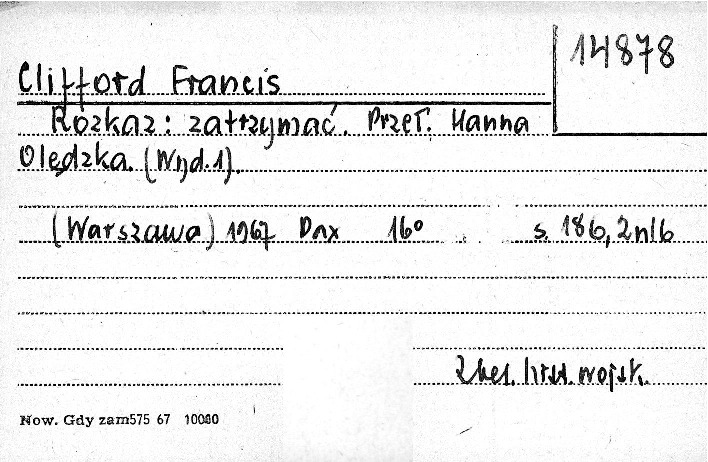 14878
Clifford Francis
Rozkaz: zatrzymać. Przeł. Hanna
Olędzka. (Wyd. 1).
(Warszawa) 1967 Pax 16° s. 186, 2nlb
hist. wojsk.
Now. Gdy zam575 67 10000